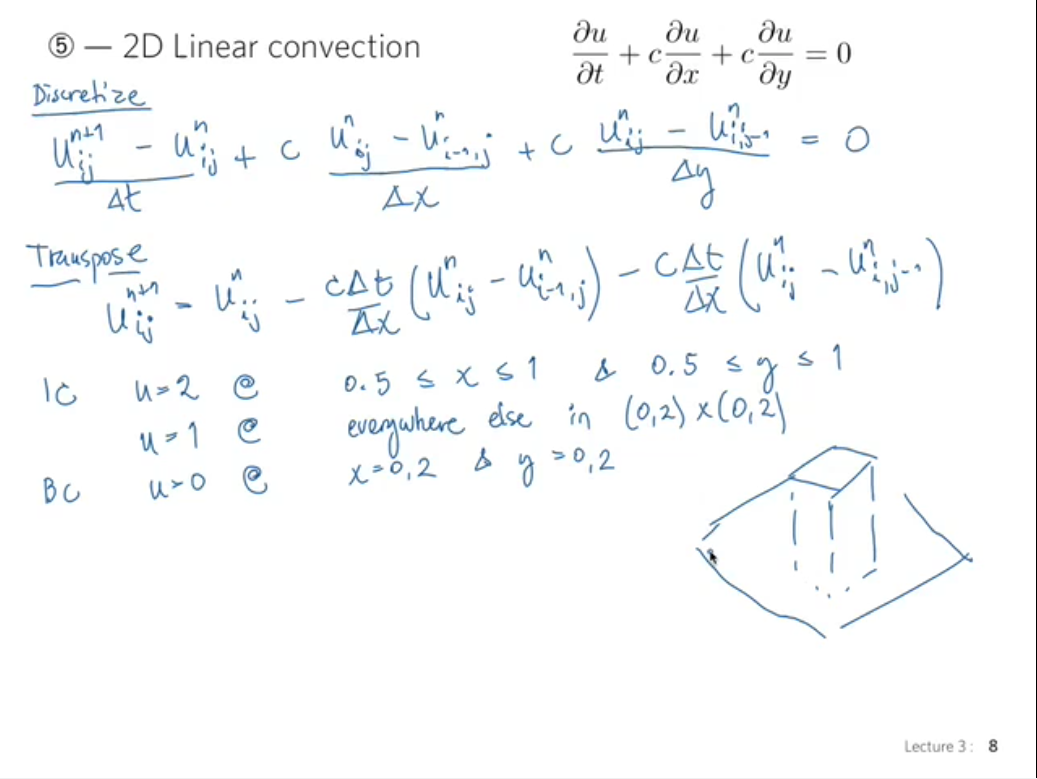 ⑤ — 2D Linear convection
∂u/∂t + c ∂u/∂x + c ∂u/∂y = 0
Discretize
(u^{n+1}_{ij} - u^n_{ij})/Δt + c (u^n_{ij} - u^n_{i-1,j})/Δx + c (u^n_{ij} - u^n_{i,j-1})/Δy = 0
Transpose
u^{n+1}_{ij} = u^n_{ij} - cΔt/Δx (u^n_{ij} - u^n_{i-1,j}) - cΔt/Δx (u^n_{ij} - u^n_{i,j-1})
IC u=2 @ 0.5 ≤ x ≤ 1 & 0.5 ≤ y ≤ 1
u=1 @ everywhere else in (0,2)x(0,2)
BC u=0 @ x=0,2 & y=0,2
Lecture 3: 8